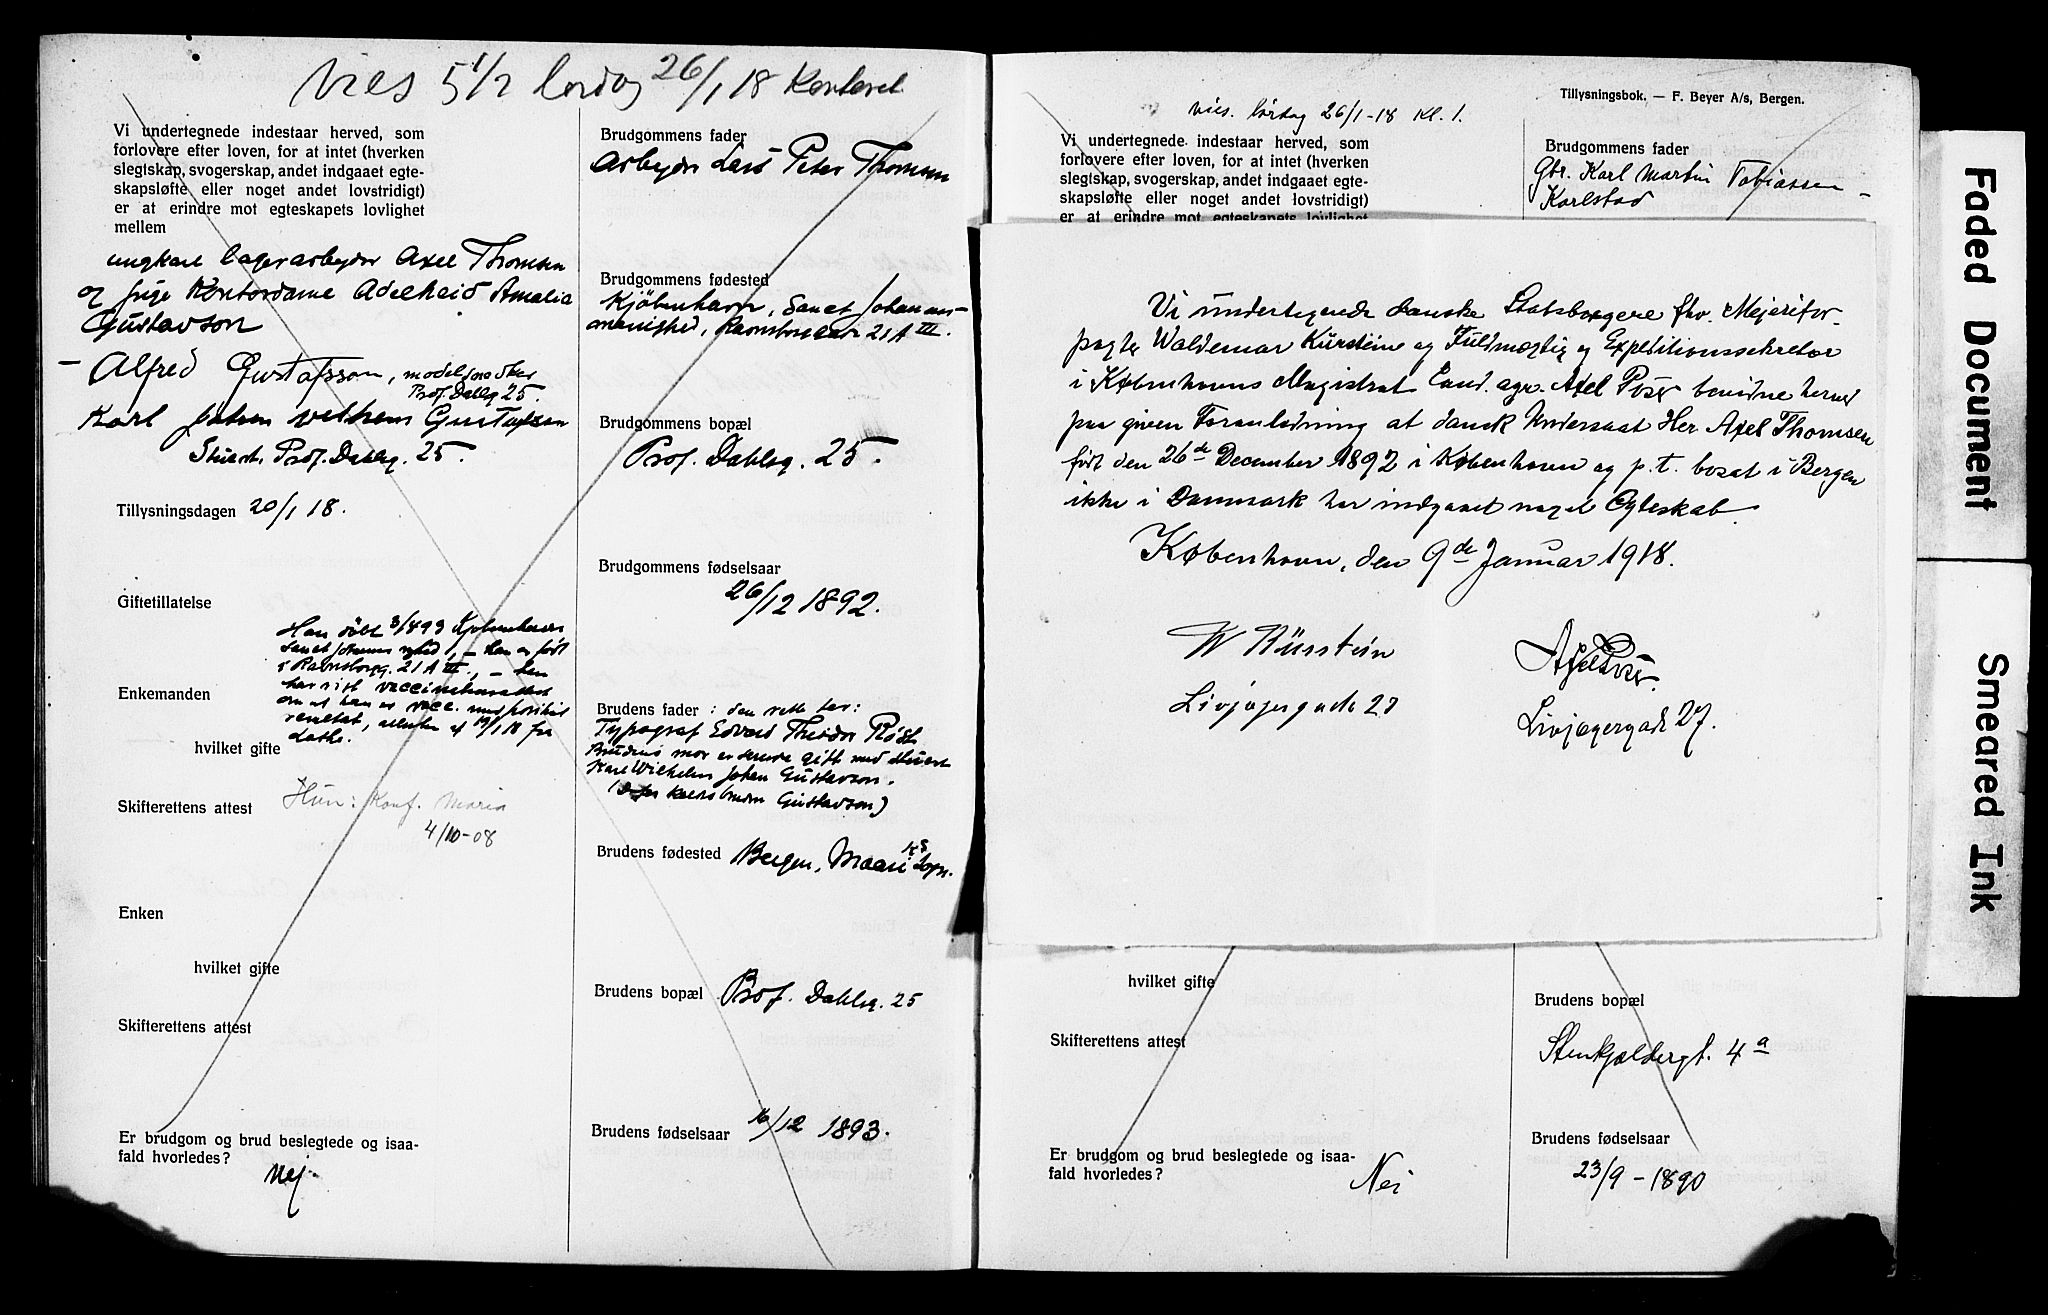 Vies 5 1/2 lørdag 26/1 18 Kontoret
Vi undertegnede indestaar herved, som
forlovere efter loven, for at intet (hverken
slegtskap, svogerskap, andet indgaaet egte-
skapsløfte eller noget andet lovstridigt)
er at erindre mot egteskapets lovlighet
mellem
ungkarl lagerarbeyder Axel Thomsen
og pige Kontordame Adelheid Amalia
Gustavson
– Alfred Gustafsson, modelsnedker
Prof. Dahlsg 25.
Karl Johan Vilhelm Gustafsson
Stuert. Prof. Dahlsg. 25.
Tillysningsdagen 20/1 18.
Giftetillatelse
Han døbt 3/4 93 Kjøbenhavn
Sanct Johannes, – han er født
i Ravnsborgg. 21 A III, – han
har vist vaccinationsattest
om at han er vacc. med
resultat, attesten af 19/1 18 fra
Enkemanden
hvilket gifte
Skifterettens attest
Hun: Konf. Maria
4/10-08
Enken
hvilket gifte
Skifterettens attest
Er brudgom og brud beslegtede og isaa-
fald hvorledes?
Nej
Brudgommens fader
Arbeyder Lars Peter Thomsen
Brudgommens fødested
Kjöbenhavn, Sanct Johannes-
menighed, 21 A III.
Brudgommens bopæl
Prof. Dahlsg. 25.
Brudgommens fødselsaar
26/12 1892.
Brudens fader: den rette far:
Typograf Edvard Theodor
Brudens mor er senere gift med stuert
Karl Wilhelm Johan Gustavson.
(Derfor kaldes bruden Gustavson)
Brudens fødested Bergen, Marie ks Sogn.
Brudens bopæl Prof. Dahlsg. 25
Brudens fødselsaar 16/12 1893.
Vies. lørdag 26/1-18 Kl. 1.
Tillysningsbok. — F. Beyer A/s, Bergen.
Vi undertegnede indestaar herved, som
forlovere efter loven, for at intet (hverken
slegtskap, svogerskap, andet indgaaet egte-
skapsløfte eller noget andet lovstridigt)
er at erindre mot egteskapets lovlighet
Brudgommens fader
Gbr. Karl Martin Tobiassen –
Karlstad
Vi undertegnede danske Statsborgere fhv. Mejerifor-
pagter Waldemar Kürstein og Fuldmægtig og Expeditionssekretær
i Københavns Magistrat Cand. agr. Axel Poser bevidne herved
paa given Foranledning at dansk Undersaat Her Axel Thomsen
født den 26de December 1892 i København og p. t. bosat i Bergen
ikke i Danmark har indgaaet noget Egteskab.
København, den 9de Januar 1918.
W Kürstein
Livjægergade 27
Axel Poser.
Livjægergade 27.
hvilket gifte
Skifterettens attest
Er brudgom og brud beslegtede og isaa-
fald hvorledes?
Nei
Brudens bopæl
Stenkjældergt. 4 a
Brudens fødselsaar
23/9 – 1890
Faded Document
Smeared Ink